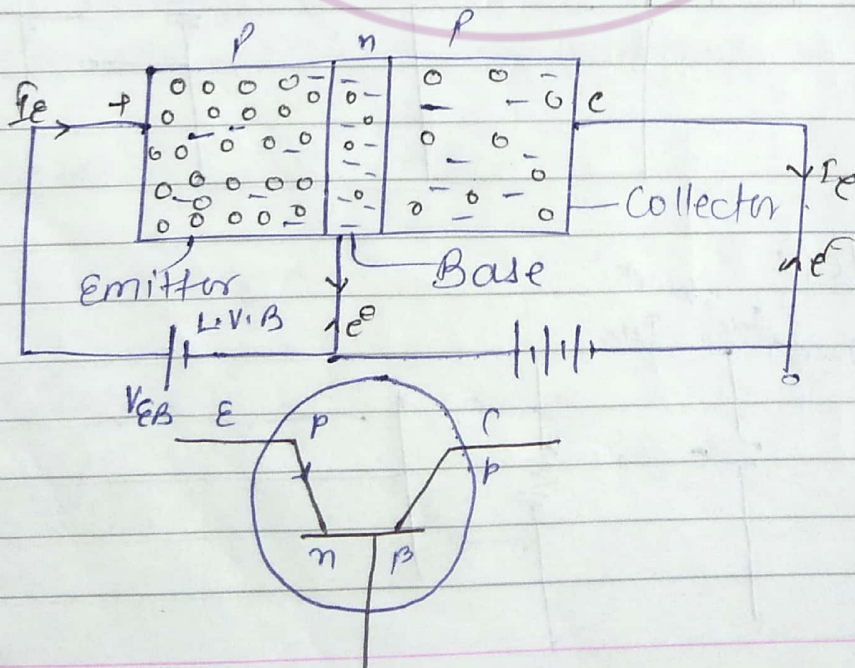 P n P
Ie + c
Ie
Collector
e-
Emitter Base
L.V.B e⊖
VEB E P C
P
n B